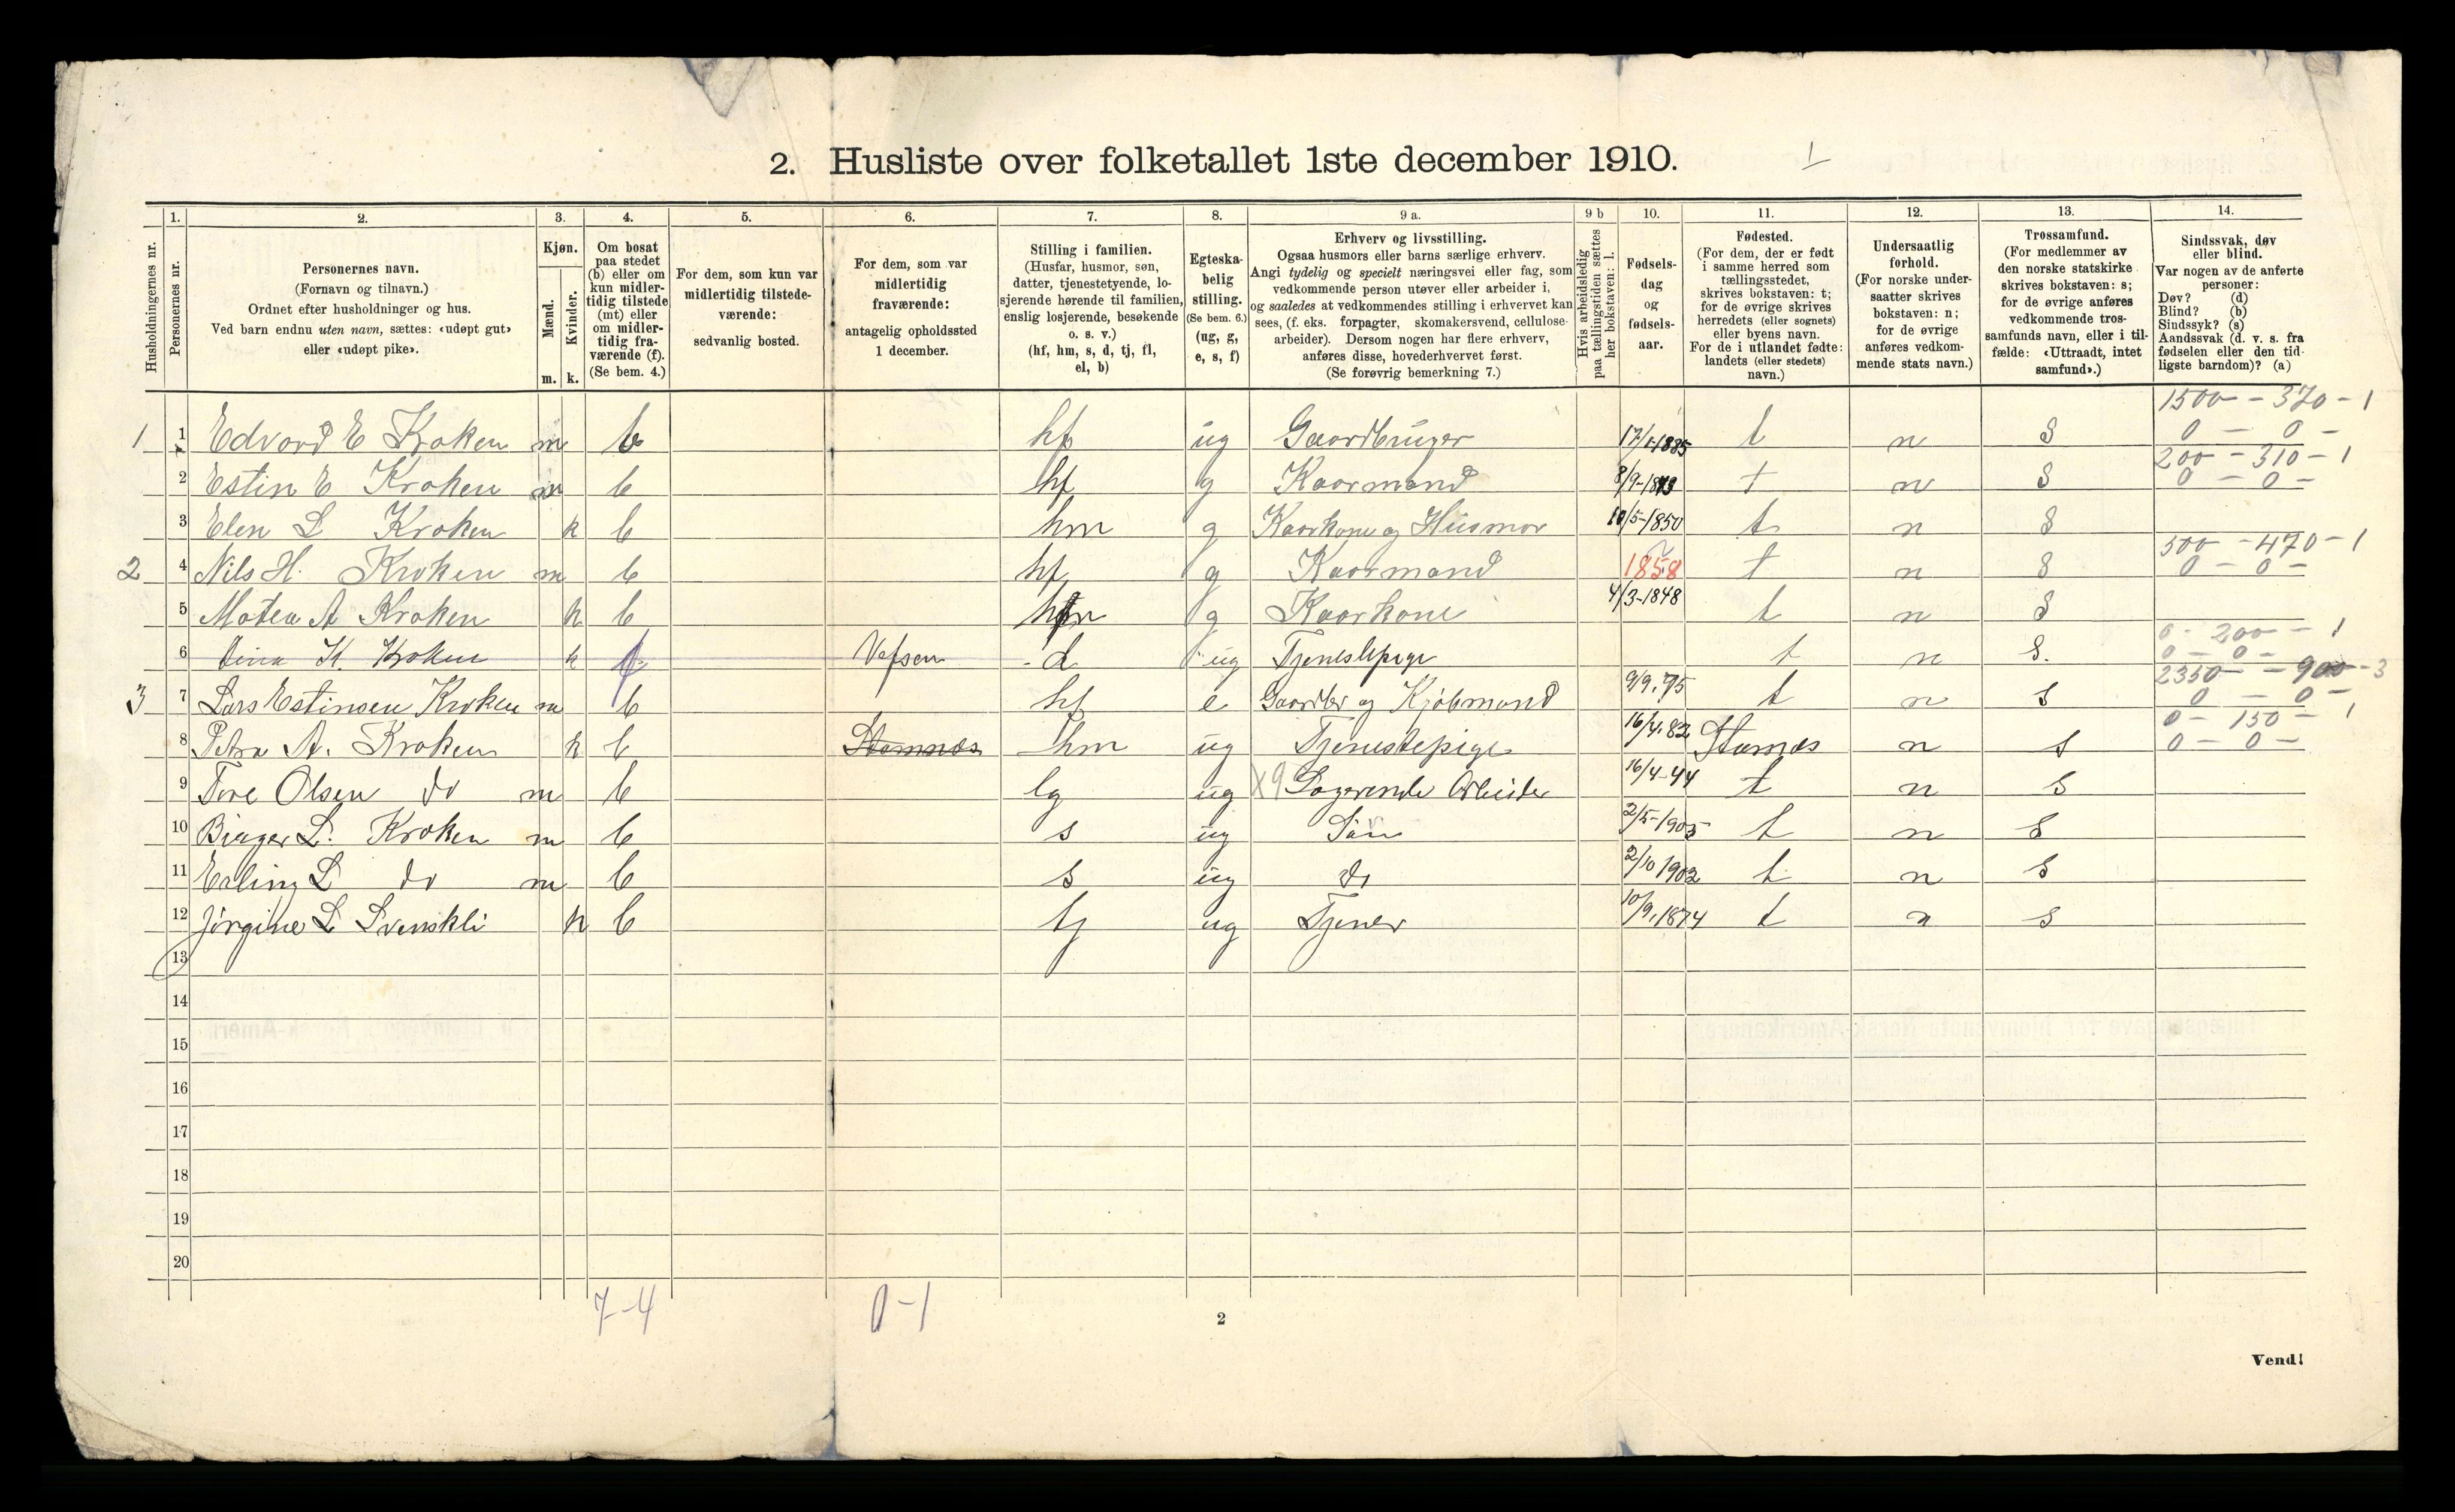 2. Husliste over folketallet 1ste december 1910. 1
1. 2. 3. 4. 5. 6. 7. 8. 9 a. 9 b 10. 11. 12. 13. 14.
Husholdningernes nr.
Personernes nr.
Personernes navn.
(Fornavn og tilnavn.)
Ordnet efter husholdninger og hus.
Ved barn endnu uten navn, sættes: «udøpt gut»
eller «udøpt pike».
Kjøn.
Mænd.
Kvinder.
m. k.
Om bosat
paa stedet
(b) eller om
kun midler-
tidig tilstede
(mt) eller
om midler-
tidig fra-
værende (f).
(Se bem. 4.)
For dem, som kun var
midlertidig tilstede-
værende:
sedvanlig bosted.
For dem, som var
midlertidig
fraværende:
antagelig opholdssted
1 december.
Stilling i familien.
(Husfar, husmor, søn,
datter, tjenestetyende, lo-
sjerende hørende til familien,
enslig losjerende, besøkende
o. s. v.)
(hf, hm, s, d, tj, fl,
el, b)
Egteska-
belig
stilling.
(Se bem. 6.)
(ug, g,
e, s, f)
Erhverv og livsstilling.
Ogsaa husmors eller barns særlige erhverv.
Angi tydelig og specielt næringsvei eller fag, som
vedkommende person utøver eller arbeider i,
og saaledes at vedkommendes stilling i erhvervet kan
sees, (f. eks. forpagter, skomakersvend, cellulose-
arbeider). Dersom nogen har flere erhverv,
anføres disse, hovederhvervet først.
(Se forøvrig bemerkning 7.)
Hvis arbeidsledig
paa tællingstiden sættes
her bokstaven: l.
Fødsels-
dag
og
fødsels-
aar.
Fødested.
(For dem, der er født
i samme herred som
tællingsstedet,
skrives bokstaven: t;
for de øvrige skrives
herredets (eller sognets)
eller byens navn.
For de i utlandet fødte:
landets (eller stedets)
navn.)
Undersaatlig
forhold.
(For norske under-
saatter skrives
bokstaven: n;
for de øvrige
anføres vedkom-
mende stats navn.)
Trossamfund.
(For medlemmer av
den norske statskirke
skrives bokstaven: s;
for de øvrige anføres
vedkommende tros-
samfunds navn, eller i til-
fælde: «Uttraadt, intet
samfund».)
Sindssvak, døv
eller blind.
Var nogen av de anførte
personer:
Døv? (d)
Blind? (b)
Sindssyk? (s)
Aandssvak (d. v. s. fra
fødselen eller den tid-
ligste barndom)? (a)
1500 - 370 - 1
1 1 Edvard E Kroken m b hf ug Gaardbruger 17/1-1885 t n S 0 - 0 -
200 - 310 - 1
2 Estin E Kroken m b hf g Kaarmand 8/9-1843 t n S 0 - 0 -
3 Elen L Kroken k b hm g Kaarkone og Husmor 10/5-1850 t n S
500 - 470 - 1
2 4 Nils H. Kroken m b hf g Kaarmand 1858 t n S 0 - 0 -
5 Matea A Kroken k b hm g Kaarkone 4/3-1848 t n S
0 - 200 - 1
6 K. Kroken k f Vefsen d ug Tjenestepige t n S. 0 - 0 -
2350 - 900 - 3
3 7 Lars Estinsen Kroken m b hf e Gaardbr og Kjöbmand 9/9.75 t n S 0 - 0 -
0 - 150 - 1
8 Petra A. Kroken k b Stamnes hm ug Tjenestepige 16/4.82 Stamnes n s 0 - 0 -
9 Tore Olsen do m b lg ug Logerende Arbeider 16/4-44 t n S
10 Birger L. Kroken m b s ug Sön 2/5-1905 t n S
11 Erling L do m b s ug do 2/10 1902 t n S
12 Jörgine L Svenskli k b tj ug Tjener 10/9.1874 t n s
13
14
15
16
17
18
19
20
7-4 0-1
2
Vend!